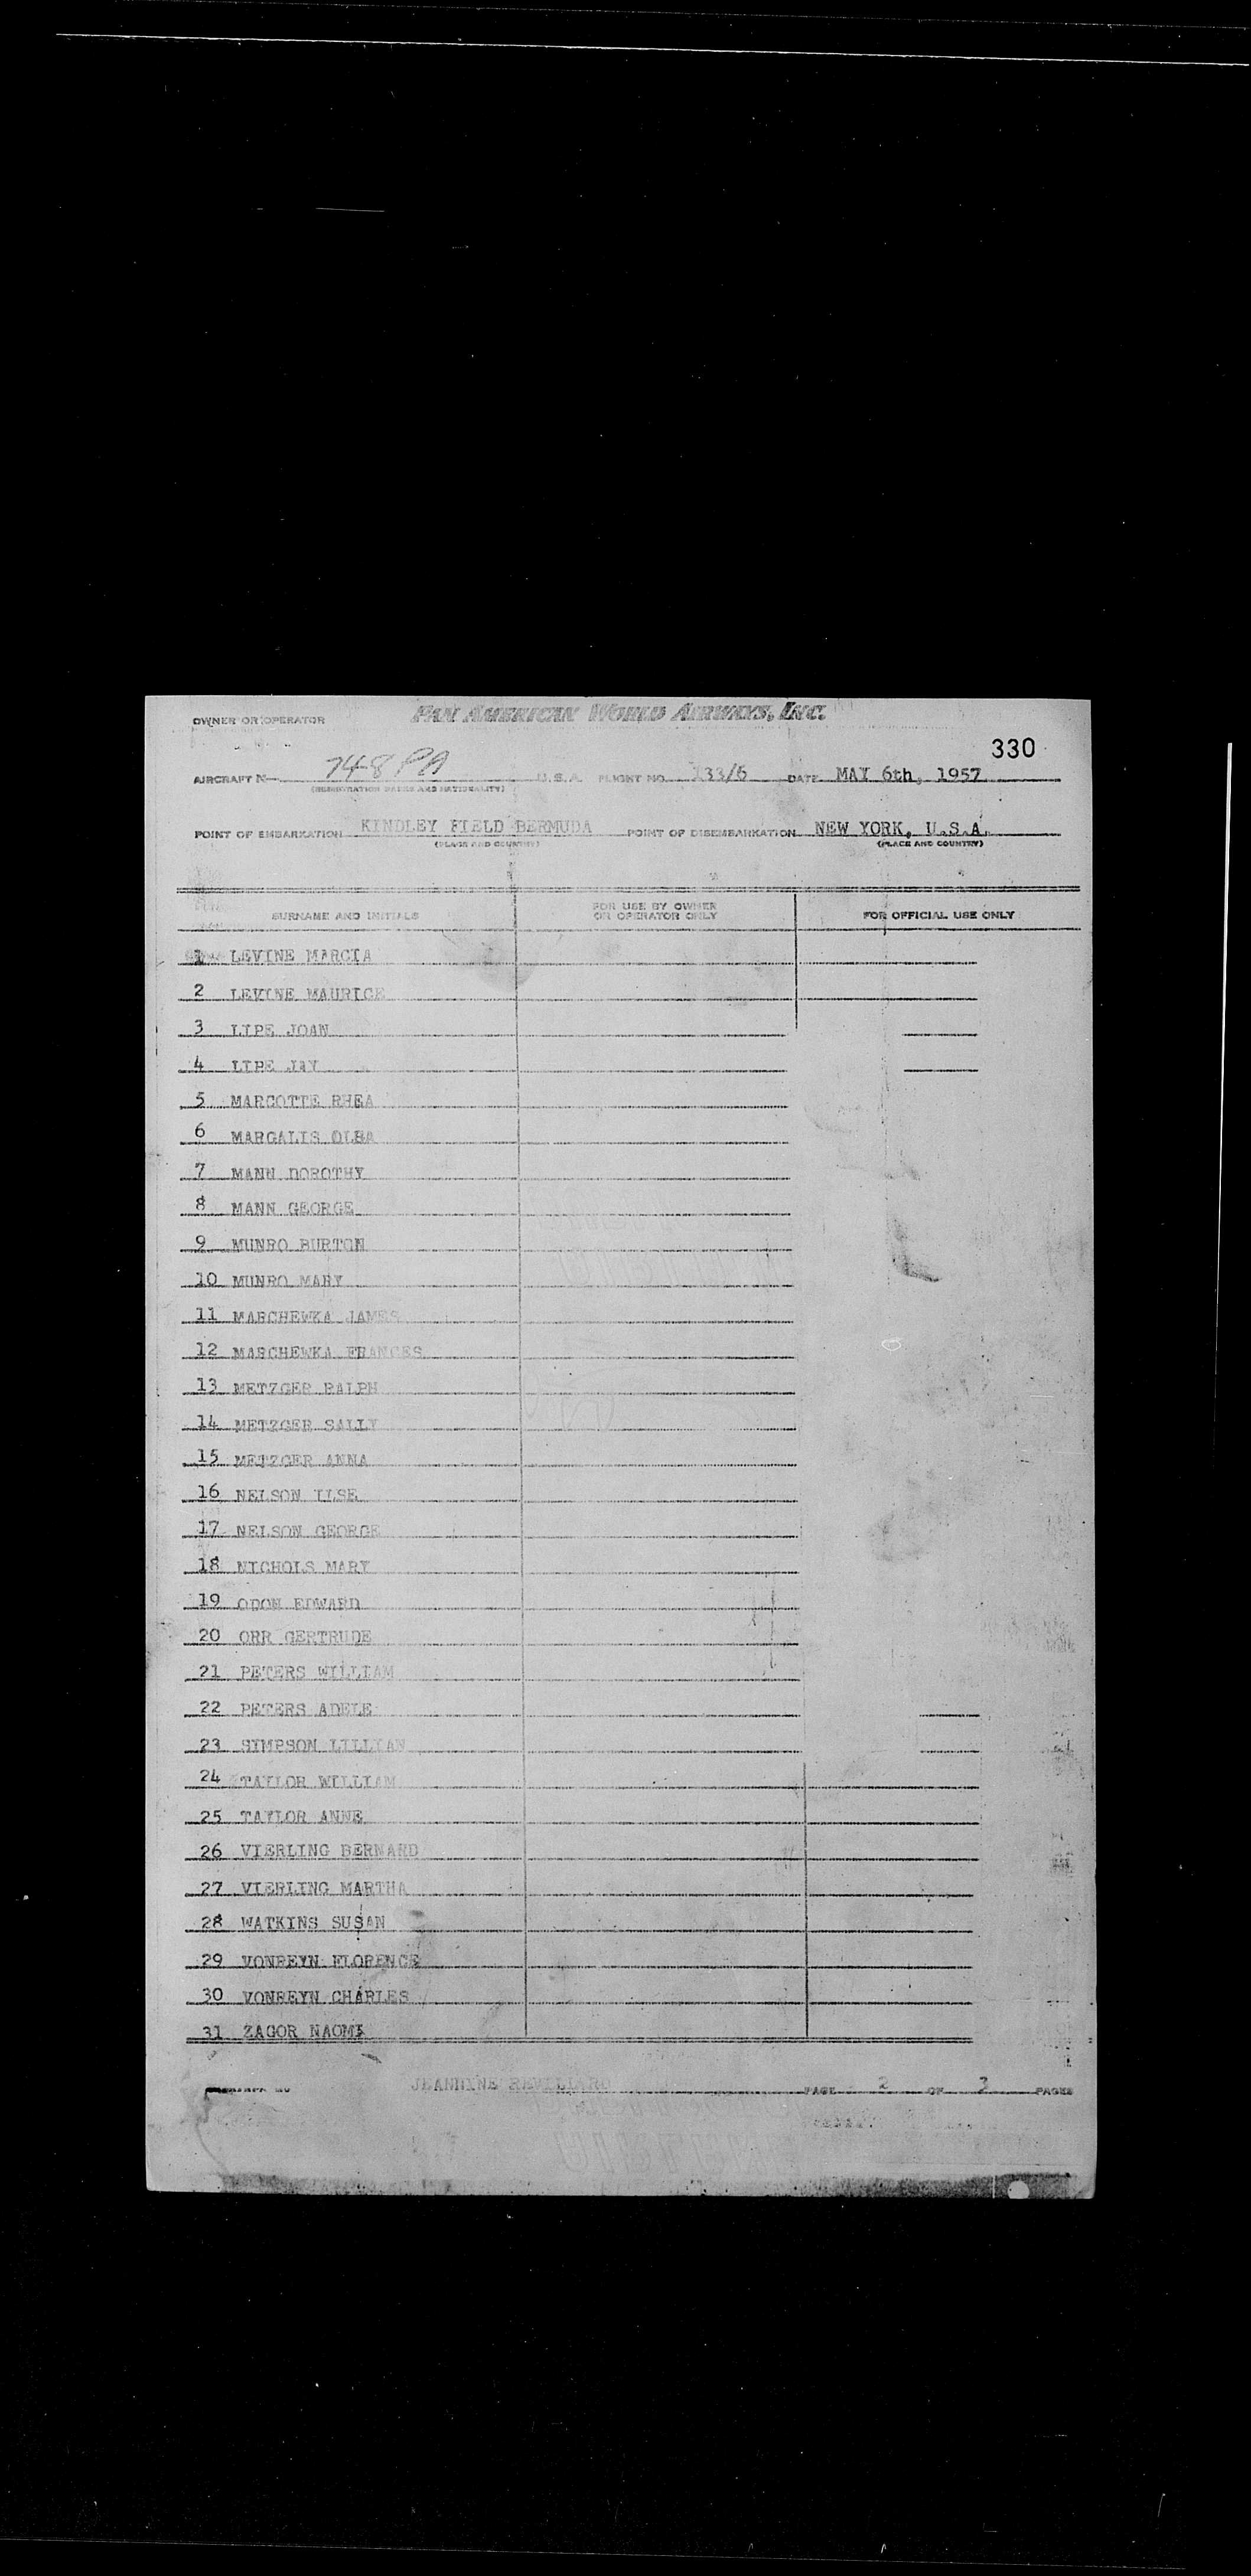 OWNER OR OPERATOR PAN AMERICAN WORLD AIRWAYS, INC.
330
AIRCRAFT N— 748 PA U.S.A. FLIGHT NO. 133/6 DATE MAY 6th, 1957
(REGISTRATION MARKS AND NATIONALITY)
POINT OF EMBARKATION KINDLEY FIELD BERMUDA POINT OF DISEMBARKATION NEW YORK, U.S.A.
(PLACE AND COUNTRY) (PLACE AND COUNTRY)
SURNAME AND INITIALS FOR USE BY OWNER OR OPERATOR ONLY FOR OFFICIAL USE ONLY
1 LEVINE MARCIA
2 LEVINE MAURICE
3 LIPE JOAN
4 LIPE JAY
5 MARCOTTE RHEA
6 MARGALIS OLBA
7 MANN DOROTHY
8 MANN GEORGE
9 MUNRO BURTON
10 MUNRO MARY
11 MARCHEWKA JAMES
12 MARCHEWKA FRANCES
13 METZGER RALPH
14 METZGER SALLY
15 METZGER ANNA
16 NELSON ILSE
17 NELSON GEORGE
18 NICHOLS MARY
19 ODOM EDWARD
20 ORR GERTRUDE
21 PETERS WILLIAM
22 PETERS ADELE
23 SIMPSON LILLIAN
24 TAYLOR WILLIAM
25 TAYLOR ANNE
26 VIERLING BERNARD
27 VIERLING MARTHA
28 WATKINS SUSAN
29 VONREYN FLORENCE
30 VONREYN CHARLES
31 ZAGOR NAOMI
JEANNINE REVILIARD PAGE 2 OF 3 PAGES